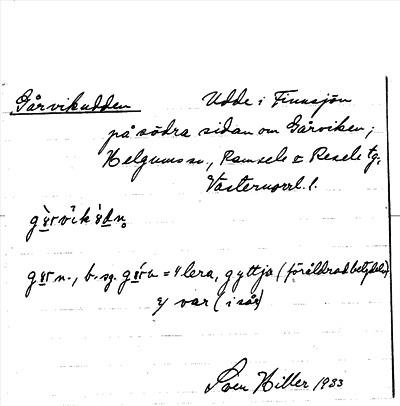 Gårvikudden Udde i Finnsjön
på södra sidan om Gårviken;
Helgums sn., Ramsele o Resele tg.
Västernorrl. l.
n., b. sg. = 1/ lera, gyttja (föråldrad betydelse)
2/ var (i sår)
Sven Hiller 1933